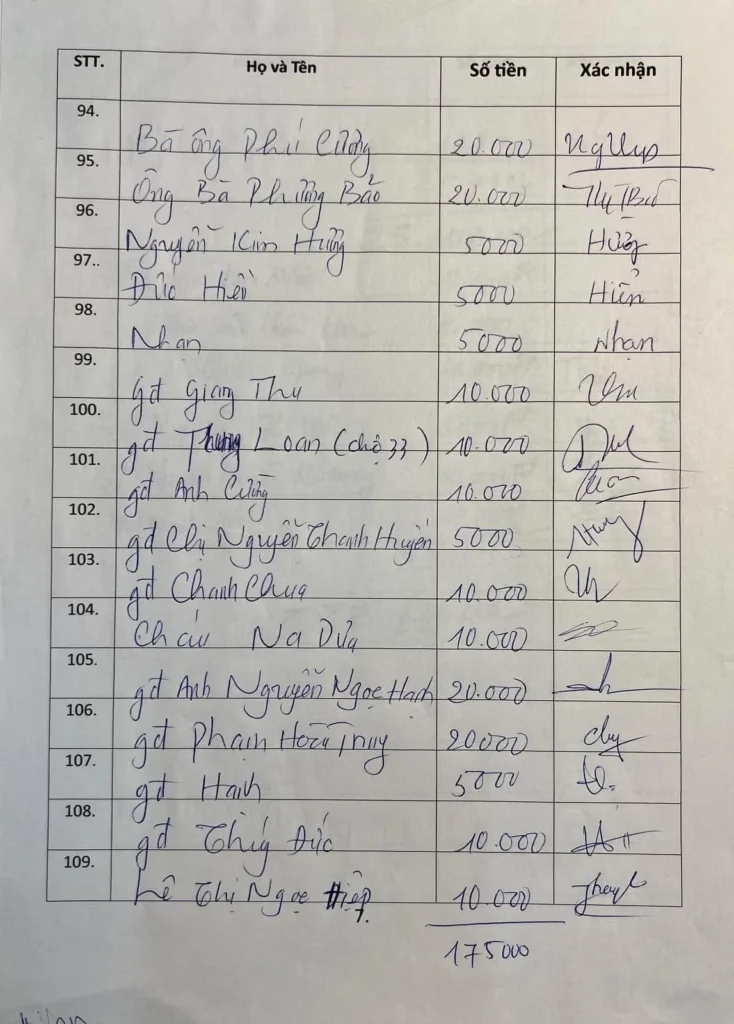 STT. Họ và Tên Số tiền Xác nhận
94. Bà ông Phú Cường 20.000
95. Ông Bà Phương Bảo 20.000
96. Nguyễn Kim Hường 5000 Hường
97.. Đức Hiền 5000 Hiền
98. Nhạn 5000 Nhạn
99. gđ Giang Thu 10.000 Thu
100. gđ Loan (chợ 33) 10.000
101. gđ Anh Cường 10.000
102. gđ Chị Nguyễn Thanh Huyền 5000
103. gđ Chanh Chua 10.000
104. Cháu Na Dừa 10.000
105. gđ Anh Nguyễn Ngọc Hạnh 20.000
106. gđ Phạm Hoài Thuy 20000
107. gđ Hạnh 5000
108. gđ Thúy Đức 10.000
109. Lê Thị Ngọc Hiệp. 10.000
175000